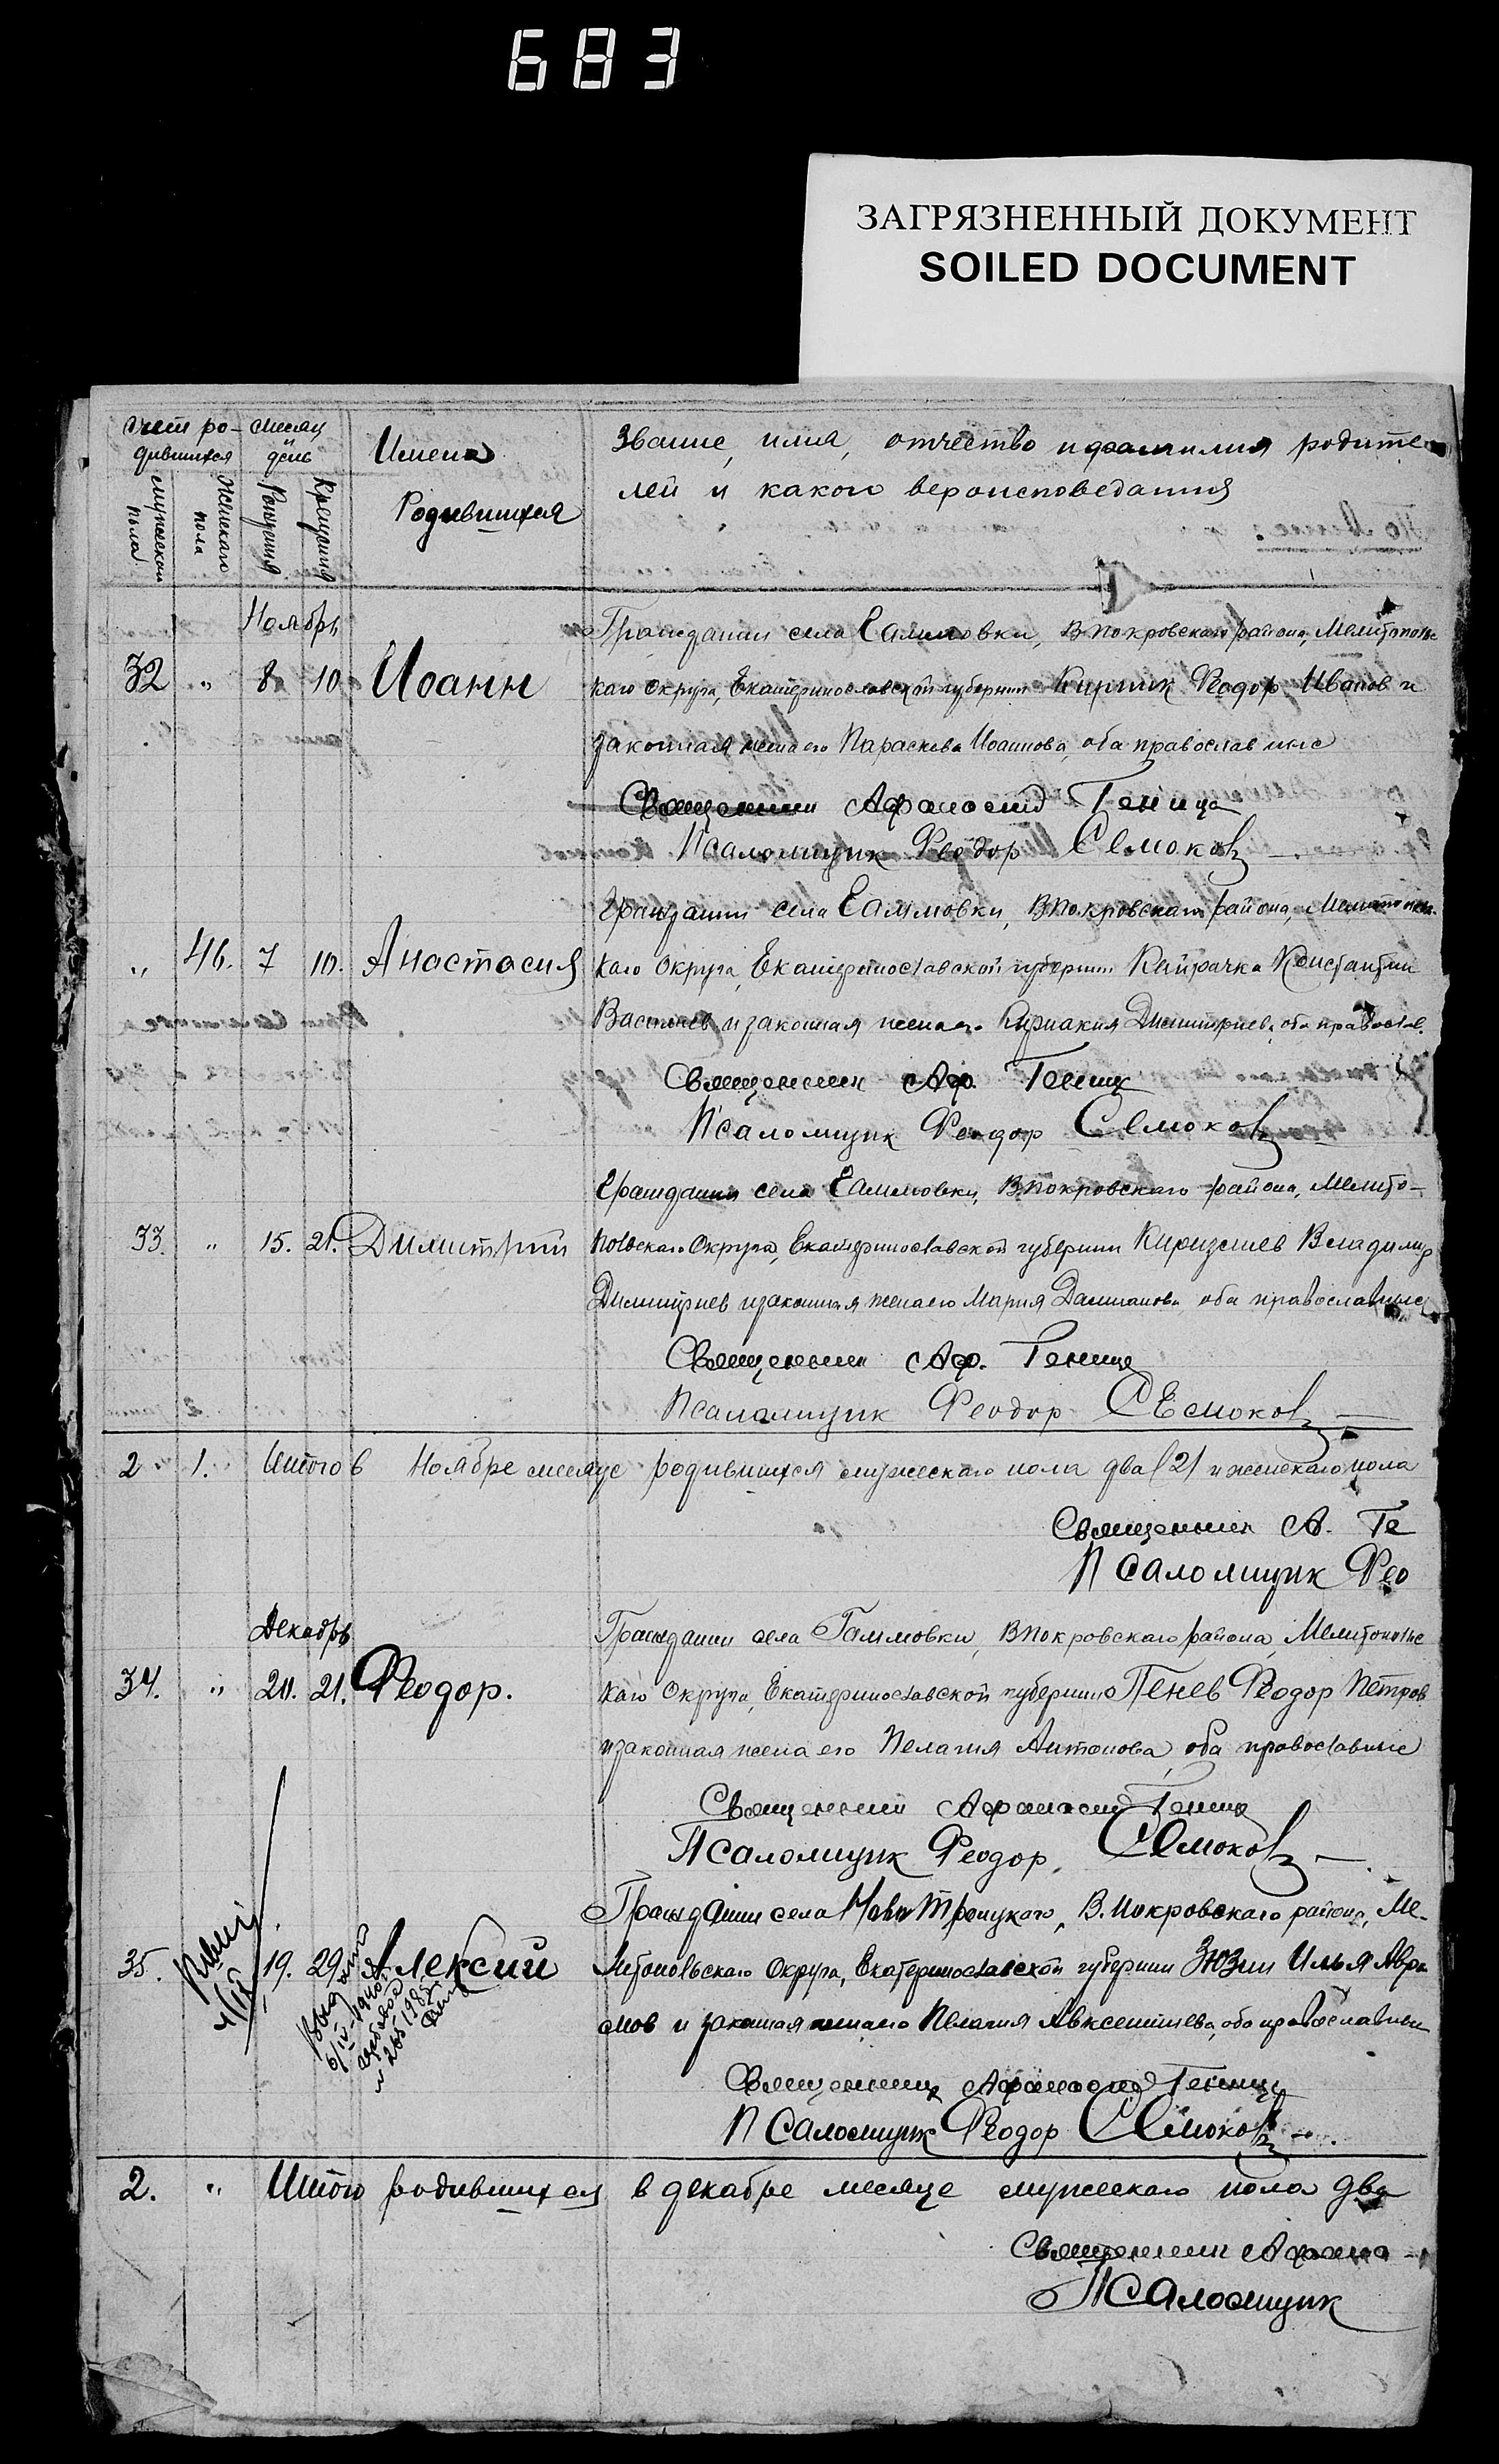 683
ЗАГРЯЗНЕННЫЙ ДОКУМЕНТ
SOILED DOCUMENT
Счет ро- месяц Имена Звание, имя, отчество и фамилия родите-
дившихся день Родившихся лей и какого вероисповедания
мужескаго пола Женскаго пола Рождения Крещения
Ноябрь
Гражданин села Гаммовки, В покровскаго района, Мелитопольс
32 " 8 10 Иоанн каго округа, Екатеринославской губернии Феодор Иванов и
законная жена его Параскева Иоаннова, оба православные
Священник Афанасий Геница
Псаломщик Феодор Семоков
Гражданин села Гаммовки, В покровскаго района,
" 46. 7 10. Анастасия каго Округа, Екатеринославской губернии Кайрачка Константин
и законная жена его Кириакия Димитриева, оба православ.
Священник Аф. Геница
Псаломщик Феодор Семоков
Гражданин села Гаммовки, В покровскаго района, Мелито-
33. " 15. 21. Димитрий польскаго Округа, Екатеринославской губернии Владимир
Димитриев и законная жена его Мария Дамианова, оба православные
Священник Аф. Геница
Псаломщик Феодор Семоков
2 1. Итого в Ноябре месяце родившихся мужескаго пола два (2) и женскаго пола
Священник А. Ге
Псаломщик Фео
Декабрь
Гражданин села Гаммовки, В покровскаго района, Мелитопольс
34. " 20. 21. Феодор. каго Округа, Екатеринославской губернии Пенев Феодор Петров
и законная жена его Пелагия Антонова, оба православные
Священник Афанасий Геница
Псаломщик Феодор Семоков
Гражданин села Ново Троицкаго, В. покровскаго района, Ме-
35. 19. 29. Алексий литопольскаго Округа, Екатеринославской губернии Зюзин Илья Авра
мов и законная жена его Пелагия Авксентиева, оба православны
Священник Афанасий Геница
Псаломщик Феодор Семоков
2. " Итого родившихся в декабре месяце мужескаго пола два
Священник Афана
Псаломщик